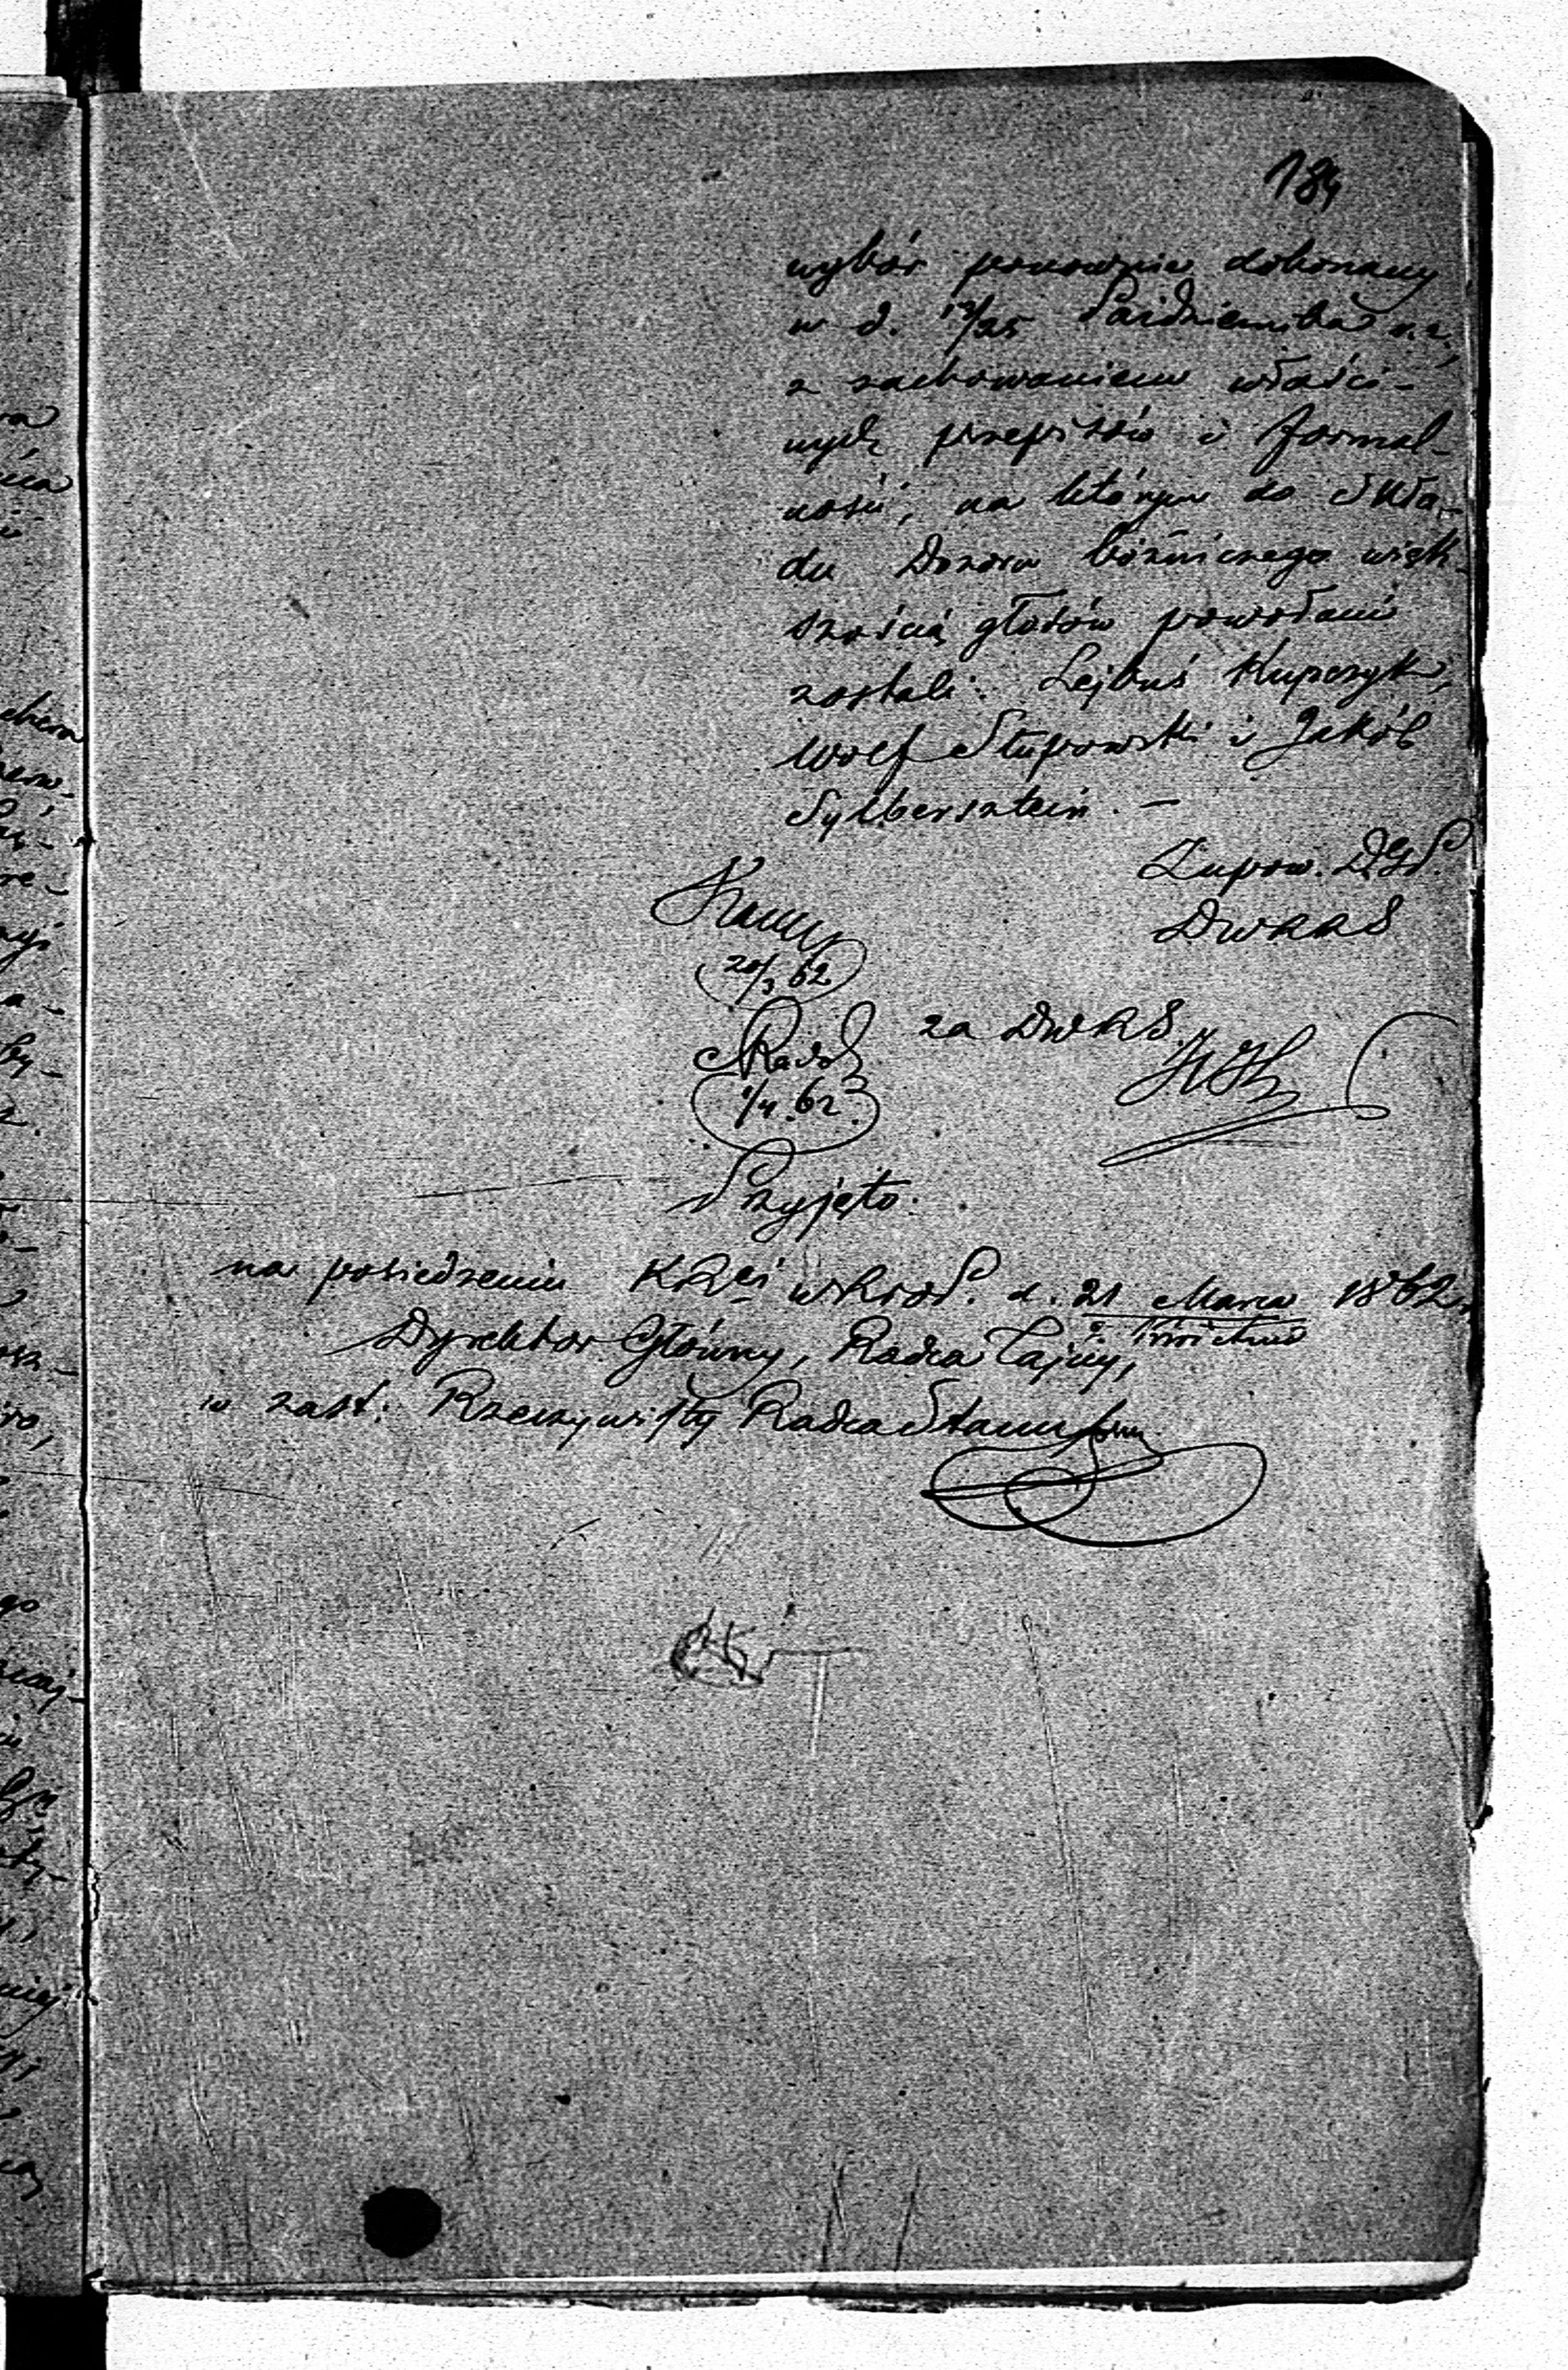 184
wybór ponownie dokonany
w d. 13/25 Października r. z.,
z zachowaniem właści-
wych przepisów i formal-
ności, na którym do Skła-
du Dozoru bóźniczego więk-
szością głosów powołani
zostali: Lejbuś Kupczyk,
Wolf Słupowski i Jakób
Sylbersztein. —
Zupow. D.G.P.
DWRRS
20/3 62
za DWRS.
1/4 .62
Przyjęto.
na posiedzeniu KRej d. 21 Marca 1862
2 Kwietnia
Dyrektor Główny, Radca Tajny,
w zast: Rzeczywisty Radca Stanu